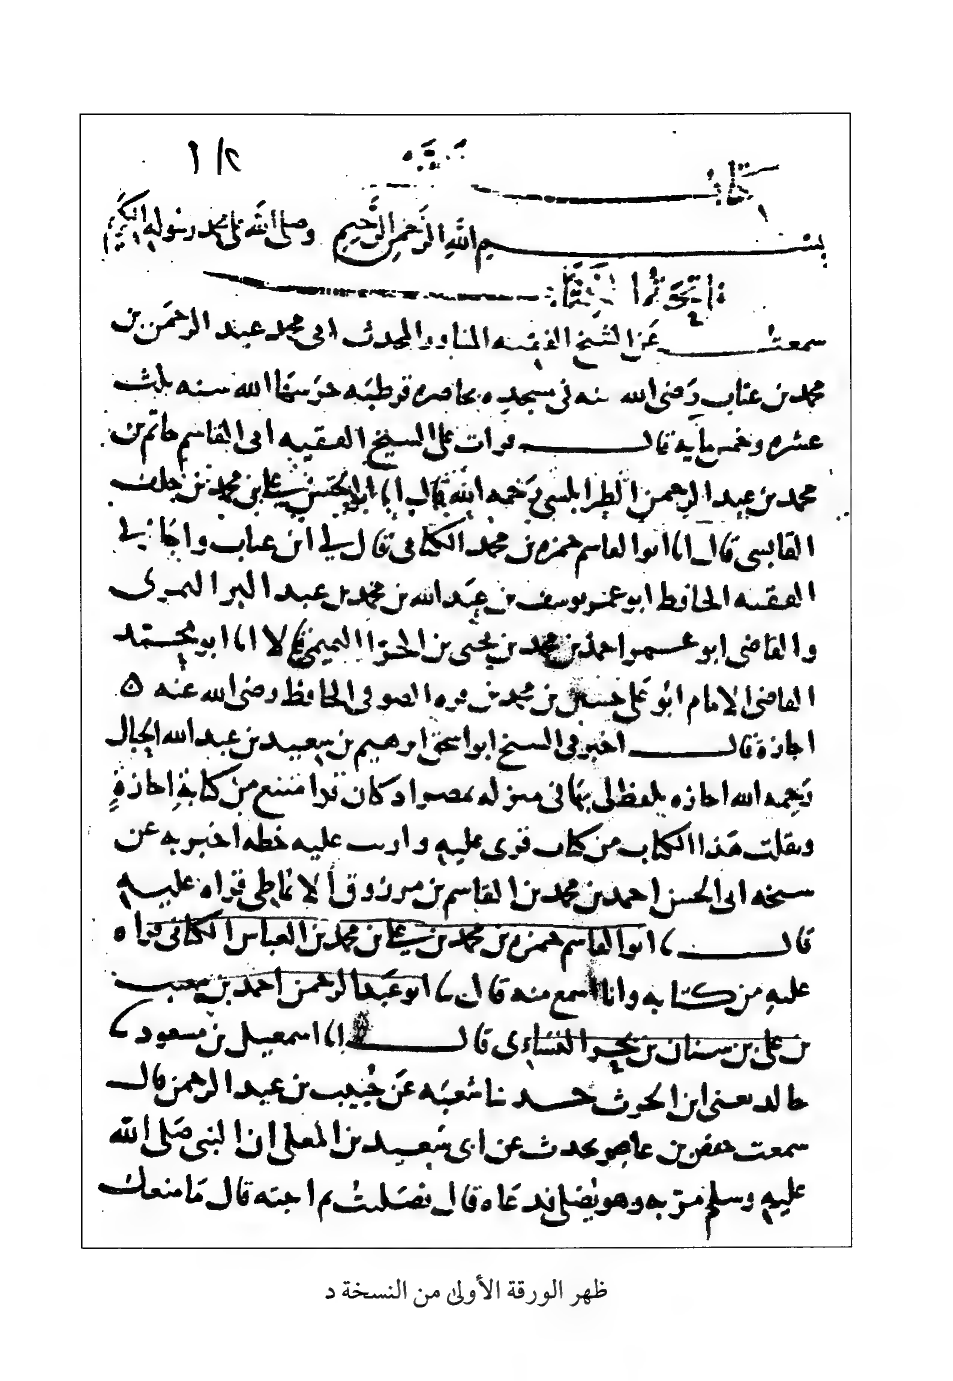 ١/٢
بسم الله الرحمن الرحيم وصلى الله على محمد رسوله الكريم
فاتحة الكتاب
سمعت عن الشيخ الفقيه المحدث ابى محمد عبد الرحمن بن
محمد بن عتاب رضى الله عنه فى مسجده بحاضره قرطبه حرسها الله سنه ثلث
عشره وخمس مايه قال قرات على الشيخ الفقيه ابى القاسم حاتم بن
محمد بن عبد الرحمن الطرابلسى رحمه الله قال انا ابو الحسن على بن محمد بن خلف
القابسى قال انا ابو القاسم حمزه بن محمد الكنانى قال لى ابن عتاب واجازنى
الفقيه الحافظ ابو عمر يوسف بن عبد الله بن محمد بن عبد البر النمرى
والقاضى ابو عمر احمد بن محمد بن يحيى بن الحذا التميمى قالا انا ابو محمد
القاضى الامام ابو على حسين بن محمد بن فيره الصوفى الحافظ رضى الله عنه
اجازة قال اخبرنى الشيخ ابو اسحق ابرهيم بن سعيد بن عبد الله الحبال
رحمه الله اجازه بلفظه لى بها فى منزله بمصر اذ كان قد امتنع من كتابة اجازة
ونقلت هذا الكتاب من كتاب قرى عليه وارت عليه خطه اخبر به عن
شيخه ابى الحسن احمد بن محمد بن القاسم بن مرزوق الانماطى قراه عليه
قال نا ابو القاسم حمزه بن محمد بن على بن محمد بن العباس الكنانى قراه
عليه من كتابه وانا اسمع منه قال نا ابو عبد الرحمن احمد بن شعيب
بن على بن سنان بن بحر النساى قال انا اسمعيل بن مسعود نا
خالد يعنى ابن الحرث حدثنا شعبه عن خبيب بن عبد الرحمن قال
سمعت حفص بن عاصم يحدث عن ابى سعيد بن المعلى ان النبى صلى الله
عليه وسلم مر به وهو يصلى فدعاه قال فصليت ثم اجيته قال ما منعك
ظهر الورقة الأولى من النسخة د